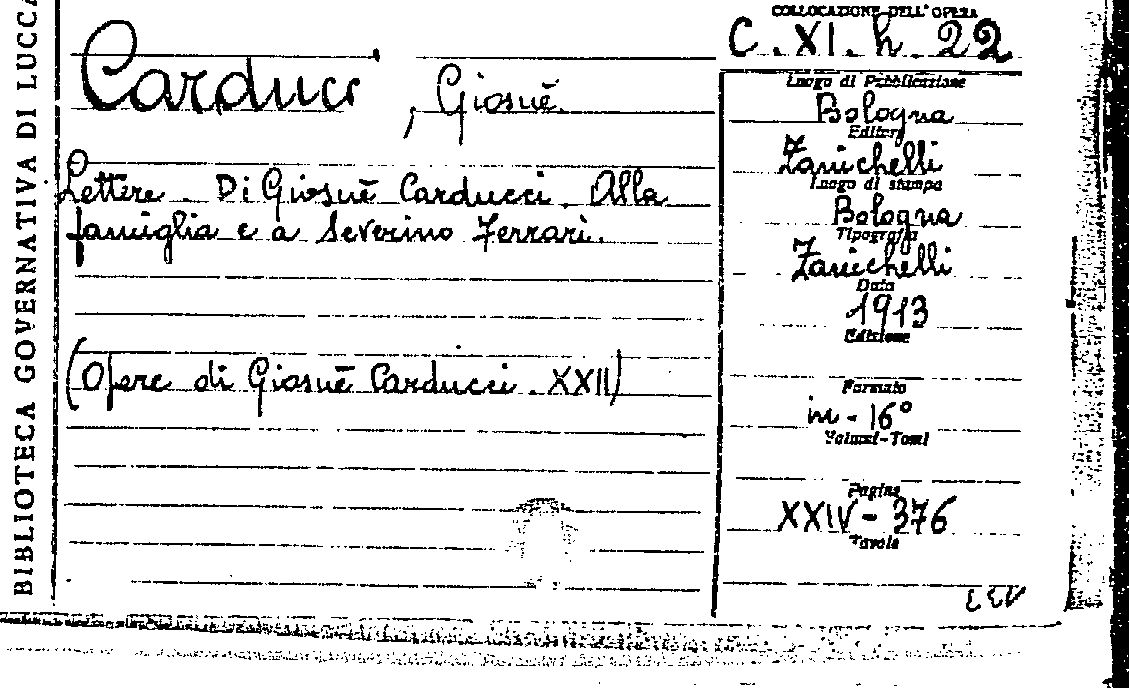 BIBLIOTECA GOVERNATIVA DI LUCCA
COLLOCAZIONE DELL'OPERA
C. XI. h. 22
Carducci, Giosuè.
Lettere. Di Giosuè Carducci. Alla
famiglia e a Severino Ferrari.
(Opere di Giosuè Carducci. XXII)
Luogo di Pubblicazione
Bologna
Editore
Zanichelli
Luogo di stampa
Bologna
Tipografia
Zanichelli
Data
1913
Edizione
Formato
in-16°
Volumi-Tomi
Pagine
XXIV-376
Tavole